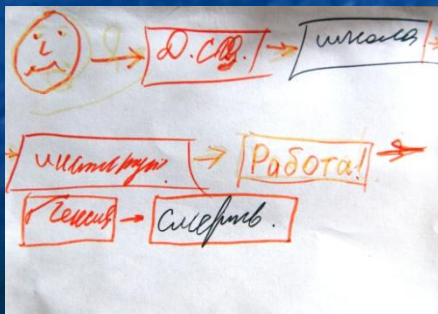 Д. сад. школа
институт. Работа!
Пенсия смерть.